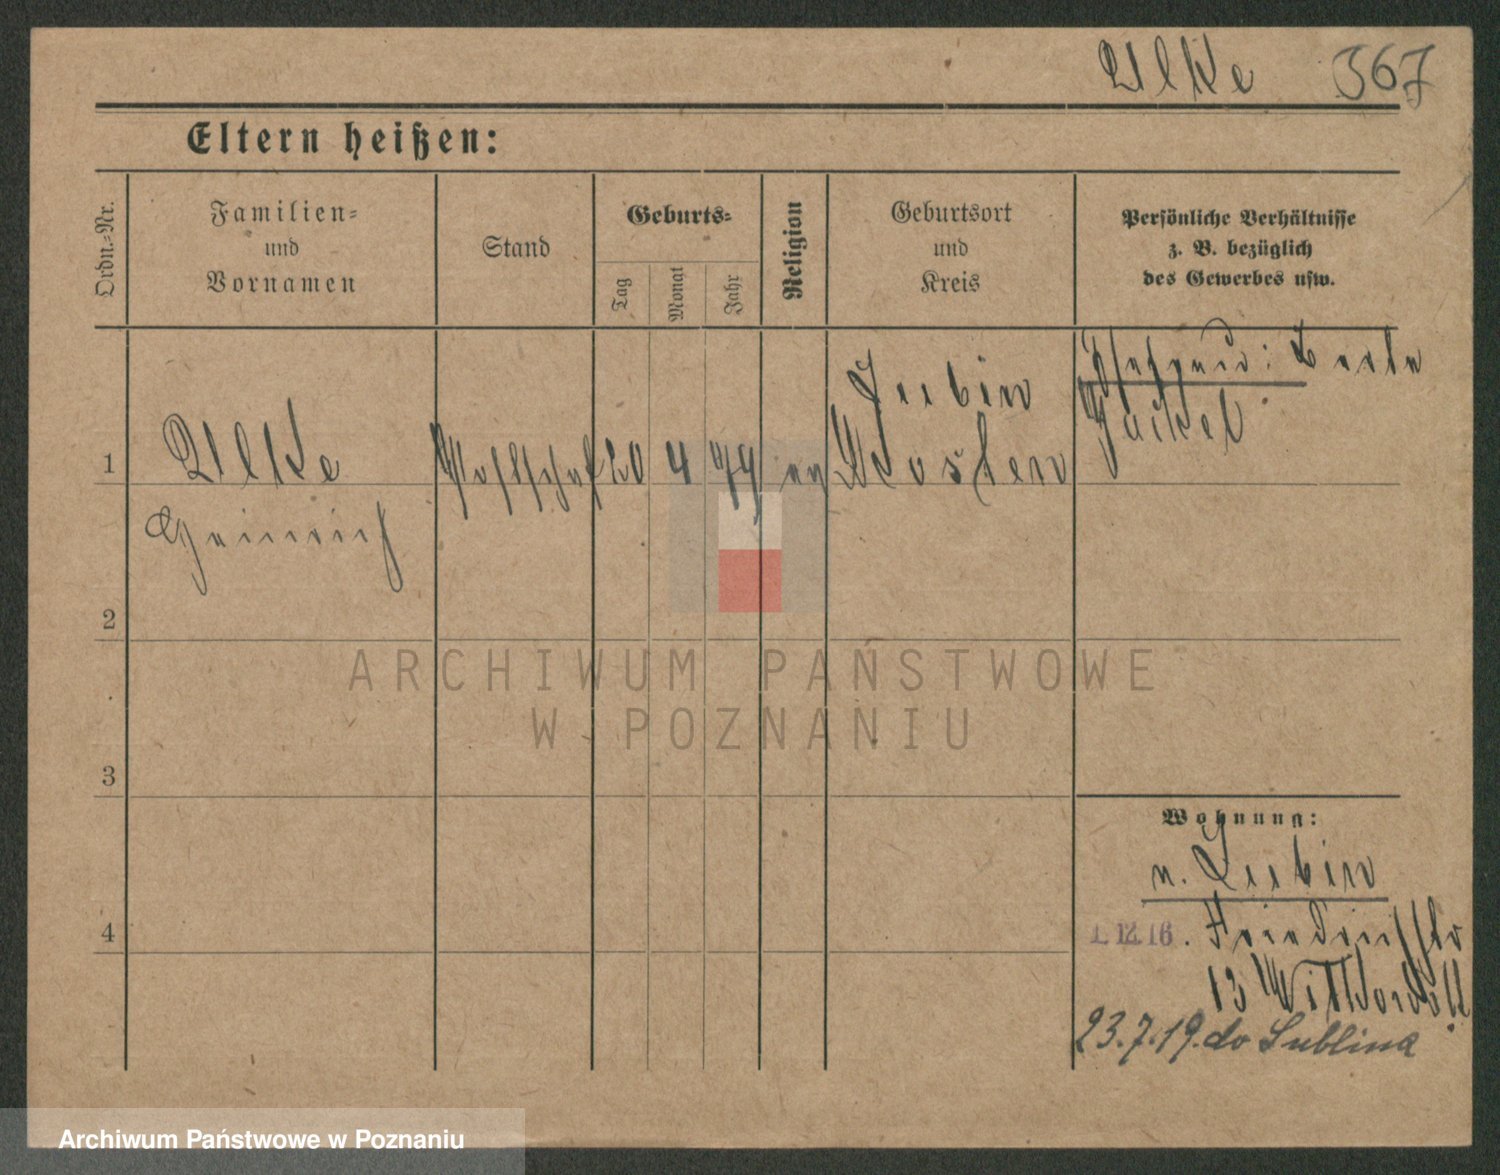 Ulke 367
Eltern heißen:
Ordn=Nr.
Familien=
und
Vornamen
Stand
Geburts=
Tag
Monat
Jahr
Religion
Geburtsort
und
Kreis
Persönliche Verhältnisse
z. B. bezüglich
des Gewerbes usw.
1
Ulke
Heinrich
20 4 79 ev
Lubin
Kosten
Ehefrau:
Jäckel
2
3
4
Wohnung:
n. Lubin
1. 12. 16. Friedrichstr
13
23.7.19. do Lublina
ARCHIWUM PAŃSTWOWE
W POZNANIU
Archiwum Państwowe w Poznaniu